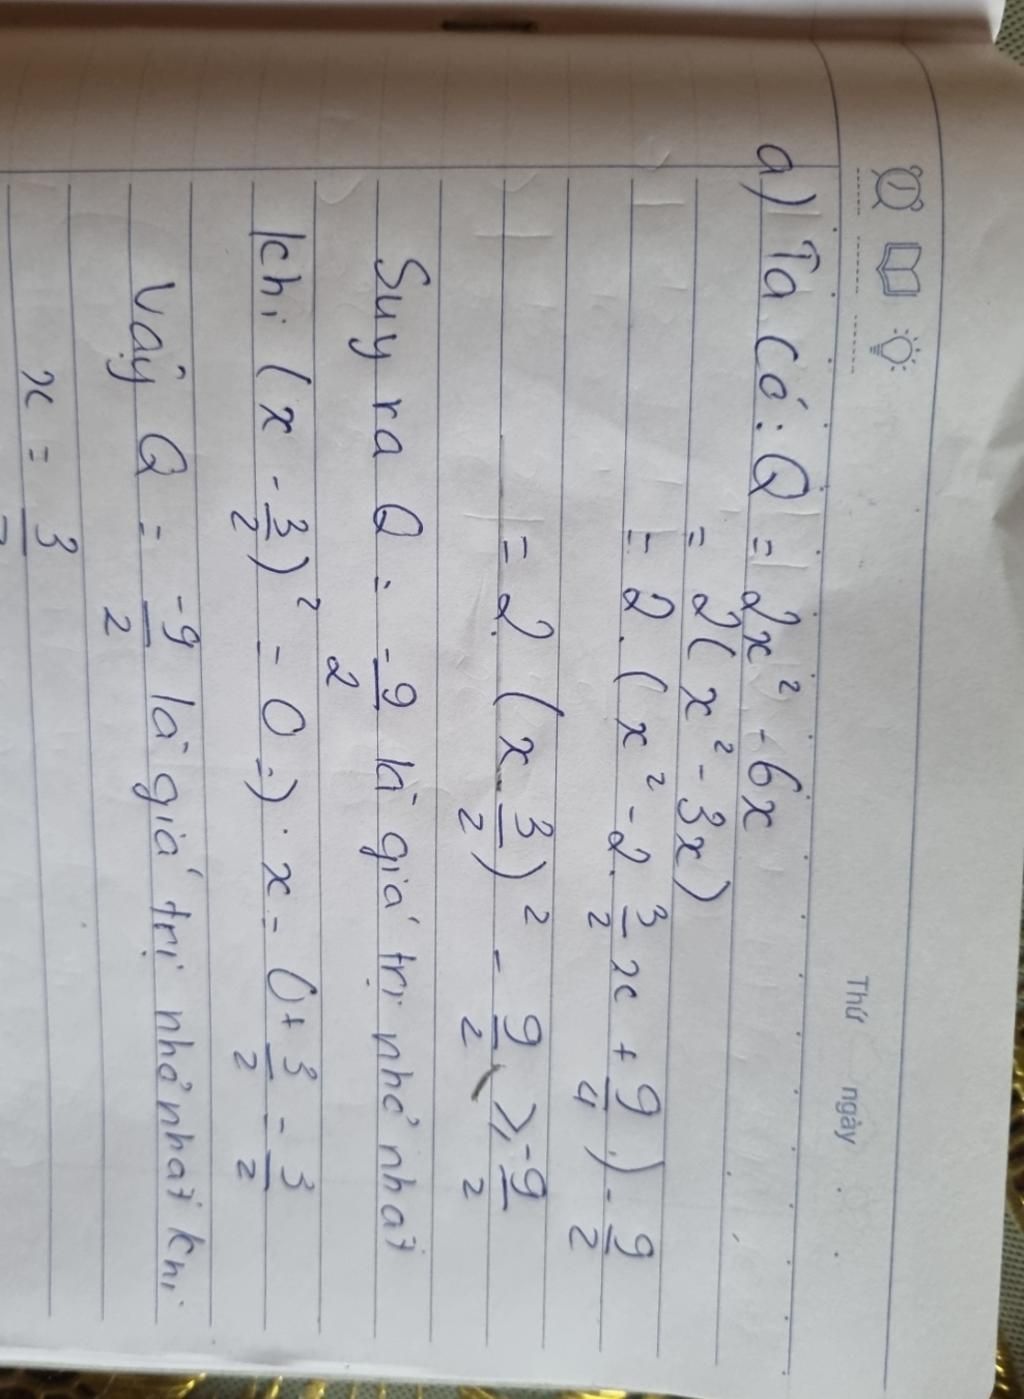 Thứ ngày
a) Ta có: Q = 2x² - 6x
= 2(x² - 3x)
= 2.(x² - 2.3/2x + 9/4) - 9/2
= 2.(x - 3/2)² - 9/2 ≥ -9/2
Suy ra Q = -9/2 là giá trị nhỏ nhất
khi (x - 3/2)² = 0 => x = 0 + 3/2 = 3/2
Vậy Q = -9/2 là giá trị nhỏ nhất khi
x = 3/2